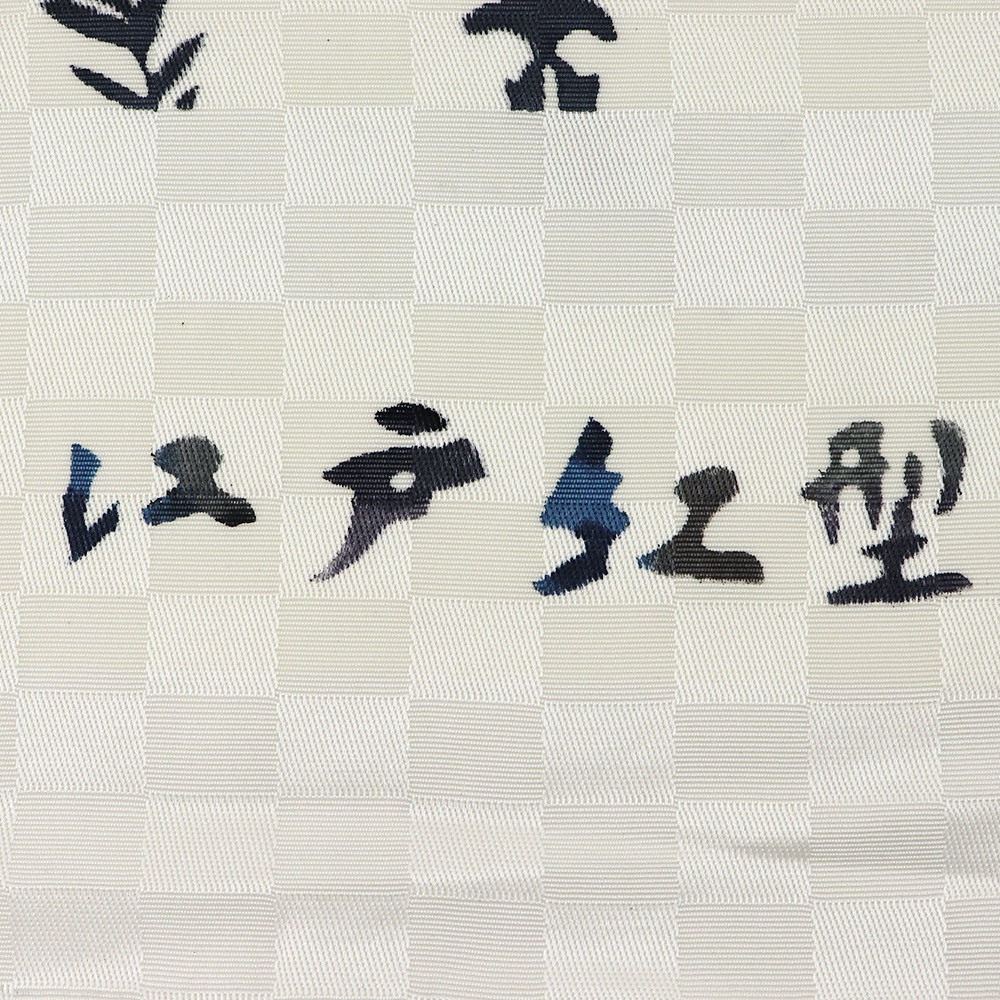 江戸紅型